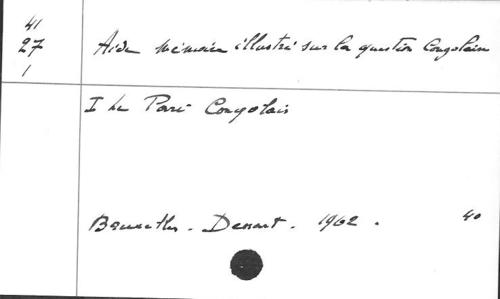 41
27
1
Aide mémoire illustré sur la question Congolaise
I Le Passé Congolais
Bruxelles - Dessart - 1962 .
40